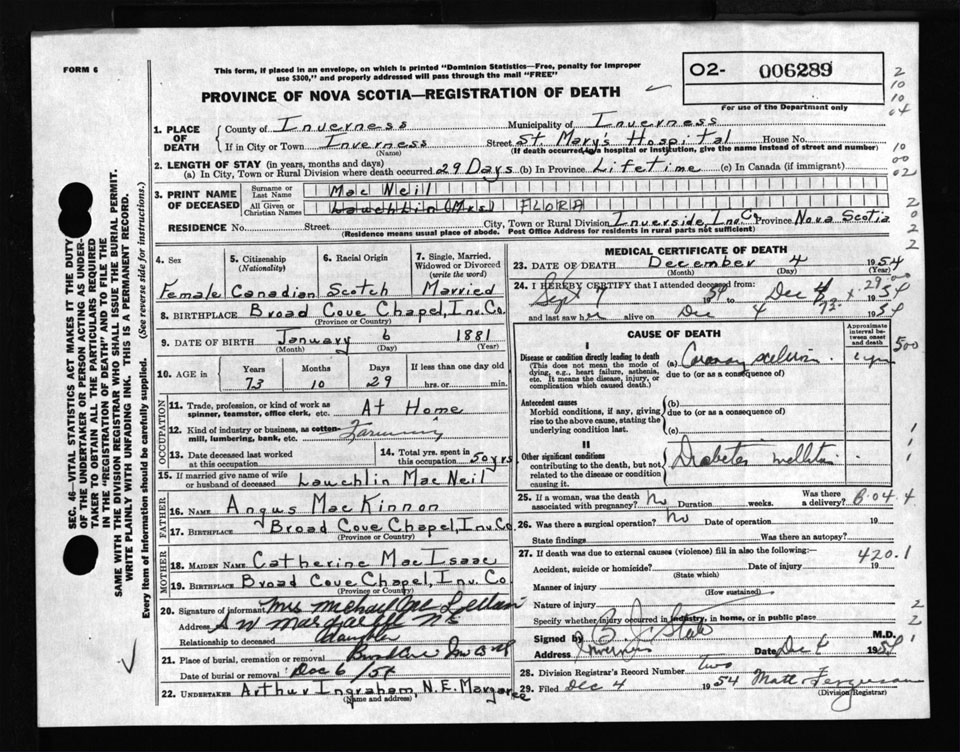 FORM 6
This form, if placed in an envelope, on which is printed "Dominion Statistics—Free, penalty for improper
use $300," and properly addressed will pass through the mail "FREE"
O2- 006289
For use of the Department only
PROVINCE OF NOVA SCOTIA—REGISTRATION OF DEATH
2
10
10
04
10
00
02
2
0
2
2
SEC. 46—VITAL STATISTICS ACT MAKES IT THE DUTY
OF THE UNDERTAKER OR PERSON ACTING AS UNDER-
TAKER TO OBTAIN ALL THE PARTICULARS REQUIRED
IN THE "REGISTRATION OF DEATH" AND TO FILE THE
SAME WITH THE DIVISION REGISTRAR WHO SHALL ISSUE THE BURIAL PERMIT.
WRITE PLAINLY WITH UNFADING INK. THIS IS A PERMANENT RECORD.
Every item of Information should be carefully supplied. (See reverse side for instructions.)
1. PLACE OF DEATH
County of Inverness Municipality of Inverness
If in City or Town Inverness Street St. Mary's Hospital House No.
(Name) (If death occurred in a hospital or institution, give the name instead of street and number)
2. LENGTH OF STAY (in years, months and days)
(a) In City, Town or Rural Division where death occurred 29 Days (b) In Province Lifetime (c) In Canada (if immigrant)
3. PRINT NAME OF DECEASED
Surname or Last Name MacNeil
All Given or Christian Names Lauchlin (Mrs) FLORA
RESIDENCE No. Street City, Town or Rural Division Inverside, Inv. Co Province Nova Scotia
(Residence means usual place of abode. Post Office Address for residents in rural parts not sufficient)
4. Sex 5. Citizenship (Nationality) 6. Racial Origin 7. Single, Married, Widowed or Divorced (write the word)
Female Canadian Scotch Married
8. BIRTHPLACE Broad Cove Chapel, Inv. Co.
(Province or Country)
9. DATE OF BIRTH January 6 1881
(Month) (Day) (Year)
10. AGE in Years Months Days If less than one day old
73 10 29 hrs. or min.
OCCUPATION
11. Trade, profession, or kind of work as spinner, teamster, office clerk, etc. At Home
12. Kind of industry or business, as cotton-mill, lumbering, bank, etc. Farming
13. Date deceased last worked at this occupation
14. Total yrs. spent in this occupation 50 yrs
15. If married give name of wife or husband of deceased Lauchlin MacNeil
FATHER
16. NAME Angus MacKinnon
17. BIRTHPLACE Broad Cove Chapel, Inv. Co.
(Province or Country)
MOTHER
18. MAIDEN NAME Catherine MacIsaac
19. BIRTHPLACE Broad Cove Chapel, Inv. Co
(Province or Country)
20. Signature of informant Mrs Michael McLellan
Address S W Margaree NS
Relationship to deceased daughter
21. Place of burial, cremation or removal Broad Cove
Date of burial or removal Dec 6/54
22. UNDERTAKER Arthur Ingraham, N.E. Margaree
(Name and address)
MEDICAL CERTIFICATE OF DEATH
23. DATE OF DEATH December 4 1954
(Month) (Day) (Year)
24. I HEREBY CERTIFY that I attended deceased from:
Sept 7 1954 to Dec 4 1954
and last saw her alive on Dec 4 1954
CAUSE OF DEATH
Approximate interval between onset and death
I
Disease or condition directly leading to death
(This does not mean the mode of dying, e.g., heart failure, asthenia, etc. It means the disease, injury, or complication which caused death.)
(a) Coronary
due to (or as a consequence of)
500
Antecedent causes
Morbid conditions, if any, giving rise to the above cause, stating the underlying condition last.
(b)
due to (or as a consequence of)
(c)
II
Other significant conditions
contributing to the death, but not related to the disease or condition causing it.
Diabetes mellitus
1
1
1
25. If a woman, was the death associated with pregnancy? No Duration weeks. Was there a delivery? B.04.4
26. Was there a surgical operation? No Date of operation 19
State findings Was there an autopsy?
27. If death was due to external causes (violence) fill in also the following:— 420.1
Accident, suicide or homicide? Date of injury 19
(State which)
Manner of injury
(How sustained)
Nature of injury
Specify whether injury occurred in industry, in home, or in public place
2
2
Signed by M.D.
Address Inverness Date Dec 4 1954
28. Division Registrar's Record Number two
29. Filed Dec 4 1954 Matt Ferguson
(Division Registrar)